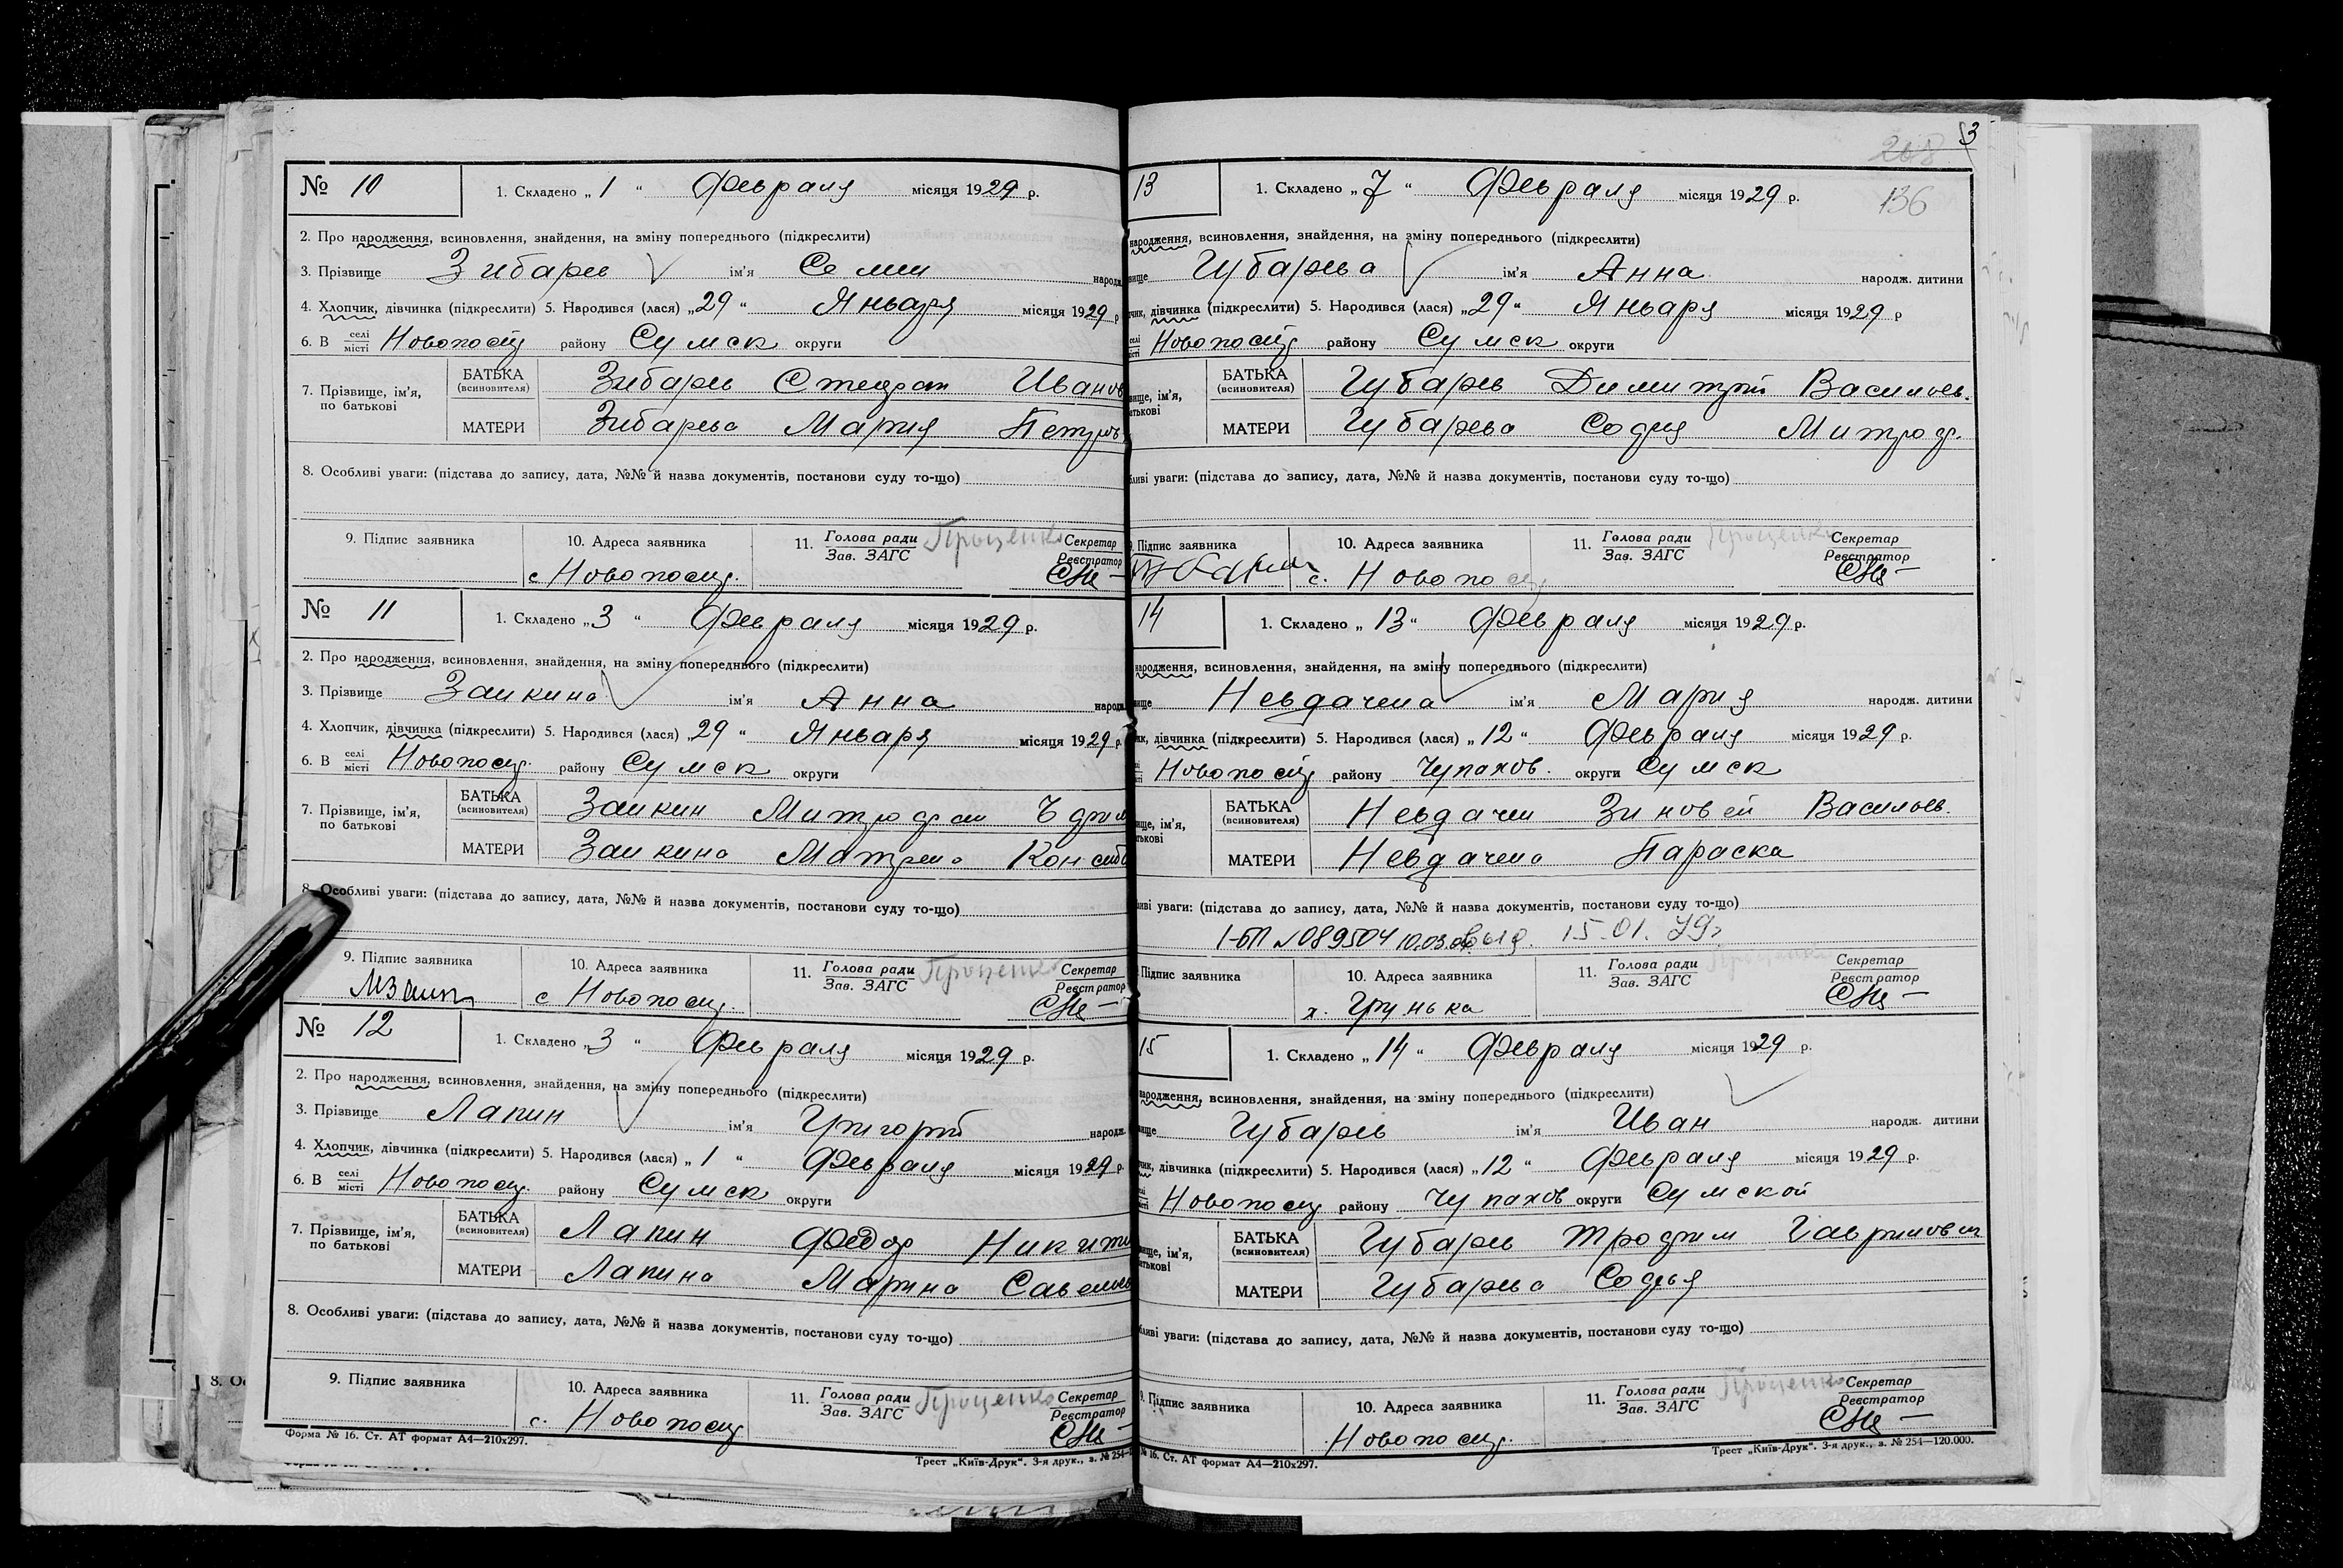 № 10
1. Складено „ 1 “ Февраля місяця 1929 р.
2. Про народження, всиновлення, знайдення, на зміну попереднього (підкреслити)
3. Прізвище Зибарев ім'я Семен народж
4. Хлопчик, дівчинка (підкреслити) 5. Народився (лася) „29“ Января місяця 1929 р
6. В селі місті Новопост району Сумск округи
7. Прізвище, ім'я, по батькові
БАТЬКА (всиновителя) Зибарев Стефан Иванов
МАТЕРИ Зибарева Мария Петров
8. Особливі уваги: (підстава до запису, дата, №№ й назва документів, постанови суду то-що)
9. Підпис заявника 10. Адреса заявника 11. Голова ради Проценко Секретар
Зав. ЗАГС Реєстратор
с Новопост.
№ 11
1. Складено „3“ Февраля місяця 1929 р.
2. Про народження, всиновлення, знайдення, на зміну попереднього (підкреслити)
3. Прізвище Заикина ім'я Анна народж
4. Хлопчик, дівчинка (підкреслити) 5. Народився (лася) „29“ Января місяця 1929 р.
6. В селі місті Новопост. району Сумск округи
7. Прізвище, ім'я, по батькові
БАТЬКА (всиновителя) Заикин Митрофан
МАТЕРИ Заикина Матрена
8. Особливі уваги: (підстава до запису, дата, №№ й назва документів, постанови суду то-що)
9. Підпис заявника 10. Адреса заявника 11. Голова ради Проценко Секретар
Зав. ЗАГС Реєстратор
с Новопост.
№ 12
1. Складено „3“ Февраля місяця 1929 р.
2. Про народження, всиновлення, знайдення, на зміну попереднього (підкреслити)
3. Прізвище Лапин ім'я Григорий народж.
4. Хлопчик, дівчинка (підкреслити) 5. Народився (лася) „ 1 “ Февраля місяця 1929 р.
6. В селі місті Новопост. району Сумск округи
7. Прізвище, ім'я, по батькові
БАТЬКА (всиновителя) Лапин Федор Никити
МАТЕРИ Лапина Марина Савельев
8. Особливі уваги: (підстава до запису, дата, №№ й назва документів, постанови суду то-що)
9. Підпис заявника 10. Адреса заявника 11. Голова ради Проценко Секретар
Зав. ЗАГС Реєстратор
с. Новопост
Форма № 16. Ст. АТ формат А4—210х297.
Трест „Київ-Друк“. 3-я друк., з. № 254—
3
268
136
13
1. Складено „7“ Февраля місяця 1929 р.
народження, всиновлення, знайдення, на зміну попереднього (підкреслити)
вище Губарева ім'я Анна народж. дитини
чик, дівчинка (підкреслити) 5. Народився (лася) „29“ Января місяця 1929 р
Новопост району Сумск округи
вище, ім'я, батькові
БАТЬКА (всиновителя) Губарев Димитрий Васильев.
МАТЕРИ Губарева София Митроф.
бливі уваги: (підстава до запису, дата, №№ й назва документів, постанови суду то-що)
Підпис заявника 10. Адреса заявника 11. Голова ради Проценко Секретар
Зав. ЗАГС Реєстратор
с. Новопост
14
1. Складено „ 13“ Февраля місяця 1929 р.
народження, всиновлення, знайдення, на зміну попереднього (підкреслити)
вище Невдачена ім'я Мария народж. дитини
чик, дівчинка (підкреслити) 5. Народився (лася) „ 12“ Февраля місяця 1929 р.
Новопост району Чупахов. округи Сумск
вище, ім'я, батькові
БАТЬКА (всиновителя) Невдачен Зиновей Васильев.
МАТЕРИ Невдачена Параска
ливі уваги: (підстава до запису, дата, №№ й назва документів, постанови суду то-що)
1-БП №089504 10.03. 15.01.
Підпис заявника 10. Адреса заявника 11. Голова ради Секретар
Зав. ЗАГС Реєстратор
х. Грунька
15
1. Складено „ 14 “ Февраля місяця 1929 р.
народження, всиновлення, знайдення, на зміну попереднього (підкреслити)
вище Губарев ім'я Иван народж. дитини
чик, дівчинка (підкреслити) 5. Народився (лася) „ 12 “ Февраля місяця 1929 р.
Новопост району Чупахов округи Сумской
вище, ім'я, батькові
БАТЬКА (всиновителя) Губарев Трофим Гаврилович
МАТЕРИ Губарева Софья
бливі уваги: (підстава до запису, дата, №№ й назва документів, постанови суду то-що)
9. Підпис заявника 10. Адреса заявника 11. Голова ради Проценко Секретар
Зав. ЗАГС Реєстратор
Новопост.
№ 16. Ст. АТ формат А4—210х297.
Трест „Київ-Друк“. 3-я друк., з. № 254—120.000.